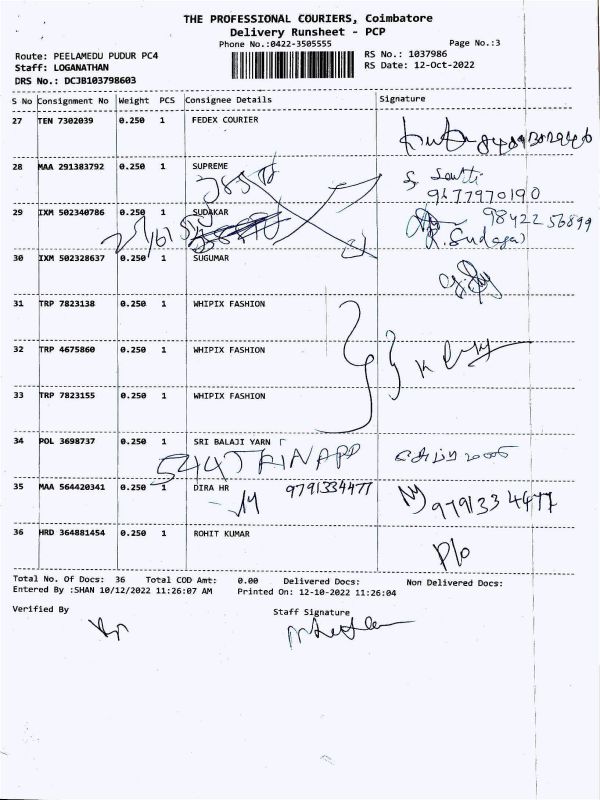 THE PROFESSIONAL COURIERS, Coimbatore
Delivery Runsheet - PCP
Phone No.:0422-3505555
Page No.:3
Route: PEELAMEDU PUDUR PC4
RS No.: 1037986
Staff: LOGANATHAN
RS Date: 12-Oct-2022
DRS No.: DCJB103798603
S No Consignment No Weight PCS Consignee Details Signature
27 TEN 7302039 0.250 1 FEDEX COURIER
28 MAA 291383792 0.250 1 SUPREME
9677970190
29 IXM 502340786 0.250 1 SUDAKAR
98422 56899
R. Sudagar
30 IXM 502328637 0.250 1 SUGUMAR
31 TRP 7823138 0.250 1 WHIPIX FASHION
32 TRP 4675860 0.250 1 WHIPIX FASHION
33 TRP 7823155 0.250 1 WHIPIX FASHION
34 POL 3698737 0.250 1 SRI BALAJI YARN
35 MAA 564420341 0.250 1 DIRA HR 9791334477
9791334477
36 HRD 364881454 0.250 1 ROHIT KUMAR
P/o
Total No. Of Docs: 36 Total COD Amt: 0.00 Delivered Docs: Non Delivered Docs:
Entered By :SHAN 10/12/2022 11:26:07 AM Printed On: 12-10-2022 11:26:04
Verified By Staff Signature